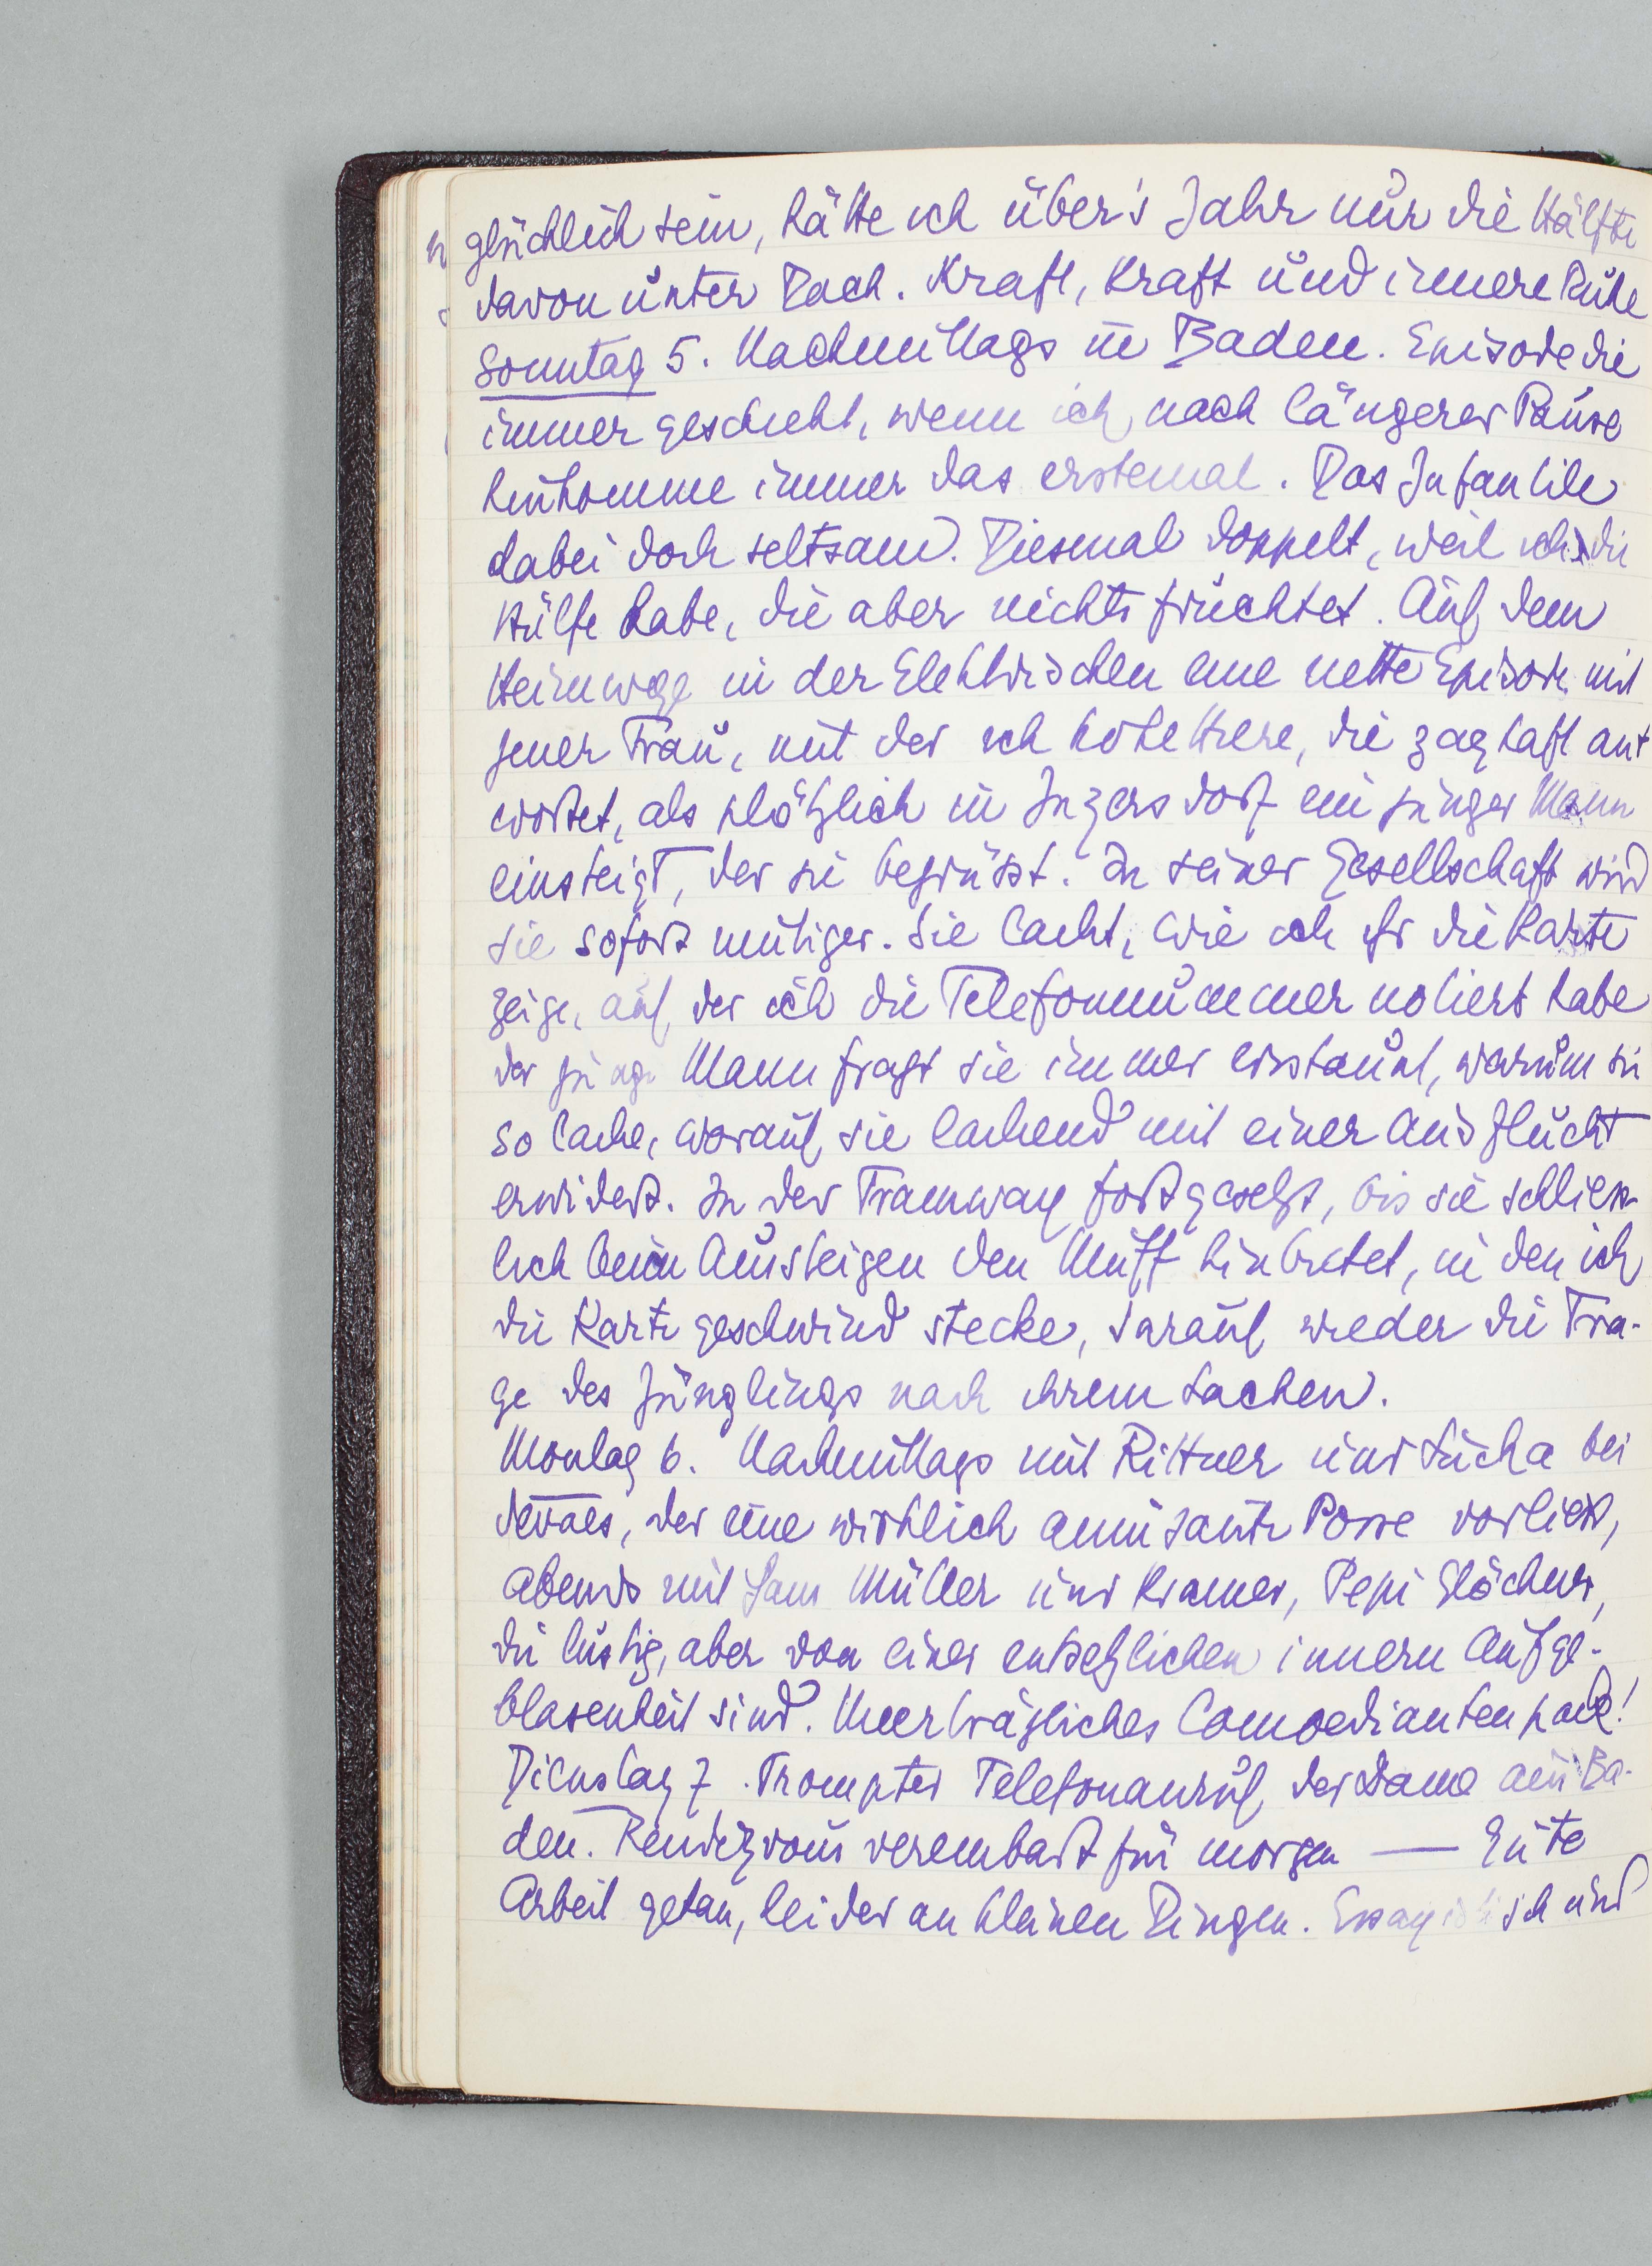 glücklich sein, hätte ich über's Jahr nur die Hälfte
davon unter Dach. Kraft, Kraft und innere Ruhe
Sonntag 5. Nachmittags in Baden. Episode die
immer geschieht, wenn ich nach längerer Pause
hinkomme immer das erstemal. Das Infantile
dabei doch seltsam. Diesmal doppelt, weil ich die
Hülfe habe, die aber nichts fruchtet. Auf dem
Heimwege in der Elektrischen eine nette Episode mit
jener Frau, mit der ich kokettiere, die zaghaft ant
wortet, als plötzlich in Inzersdorf ein junger Mann
einsteigt, der sie begrüsst. In seiner Gesellschaft wird
sie sofort mutiger. Sie lacht, wie ich ihr die Karte
zeige, auf der ich die Telefonnummer notiert habe
der junge Mann fragt sie immer erstaunt, warum sie
so lache, worauf sie lachend mit einer Ausflucht
erwidert. In der Tramway fortgesetzt, bis sie schliess-
lich beim Aussteigen den Muff hinbietet, in den ich
die Karte geschwind stecke, darauf wieder die Fra-
ge des Jünglings nach ihrem Lachen.
Montag 6. Nachmittags mit Rittner und Lucka bei
der eine wirklich amüsante Posse vorliest,
abends mit Hans Müller und Kramer, Pepi Glöckner,
die lustig, aber von einer entsetzlichen innern Aufge-
blasenheit sind. Unerträgliches Comoediantenpack!
Dienstag 7. Prompter Telefonanruf der Dame aus Ba-
den. Rendezvous vereinbart für morgen — Gute
Arbeit getan, leider an kleinen Dingen. Essayistisch und